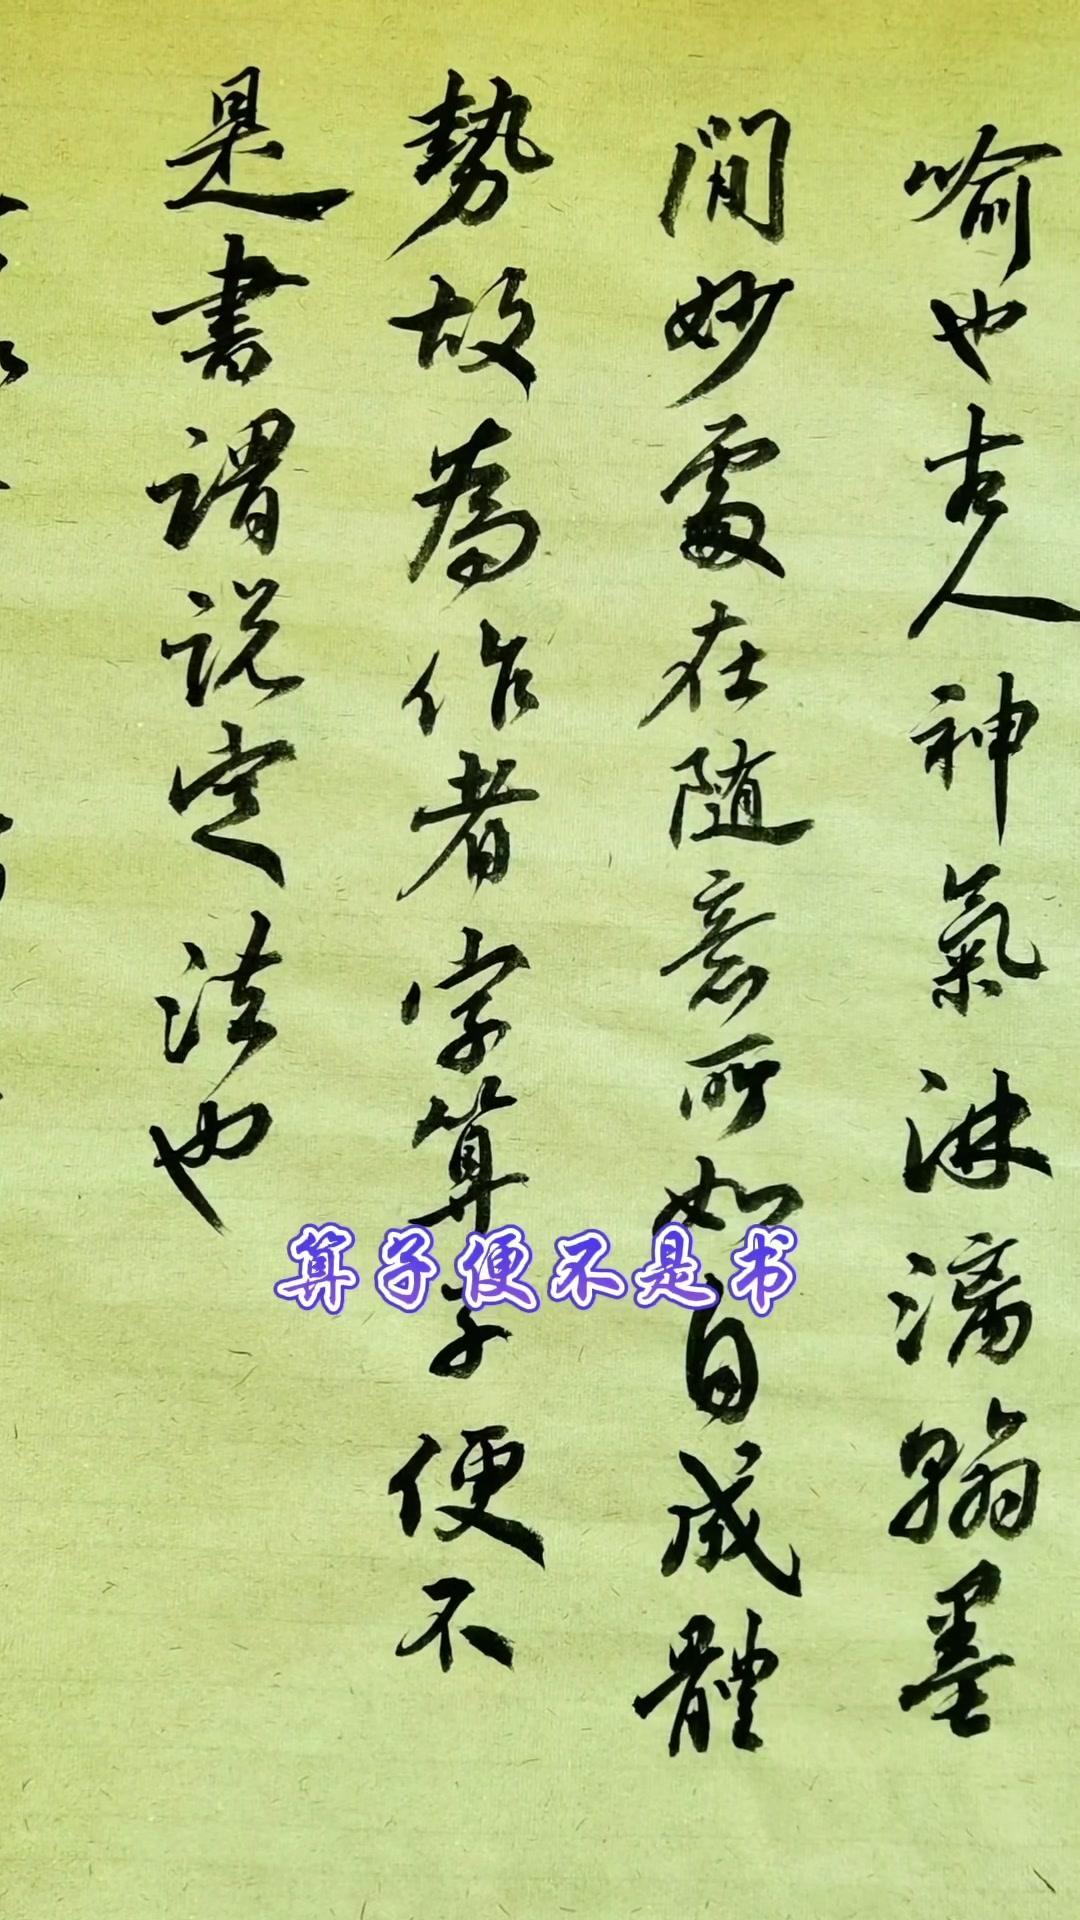 喻也古人神氣淋漓翰墨
間妙處在随意所如自成體
勢故為作者字算子便不
是書謂說定法也
算子便不是书